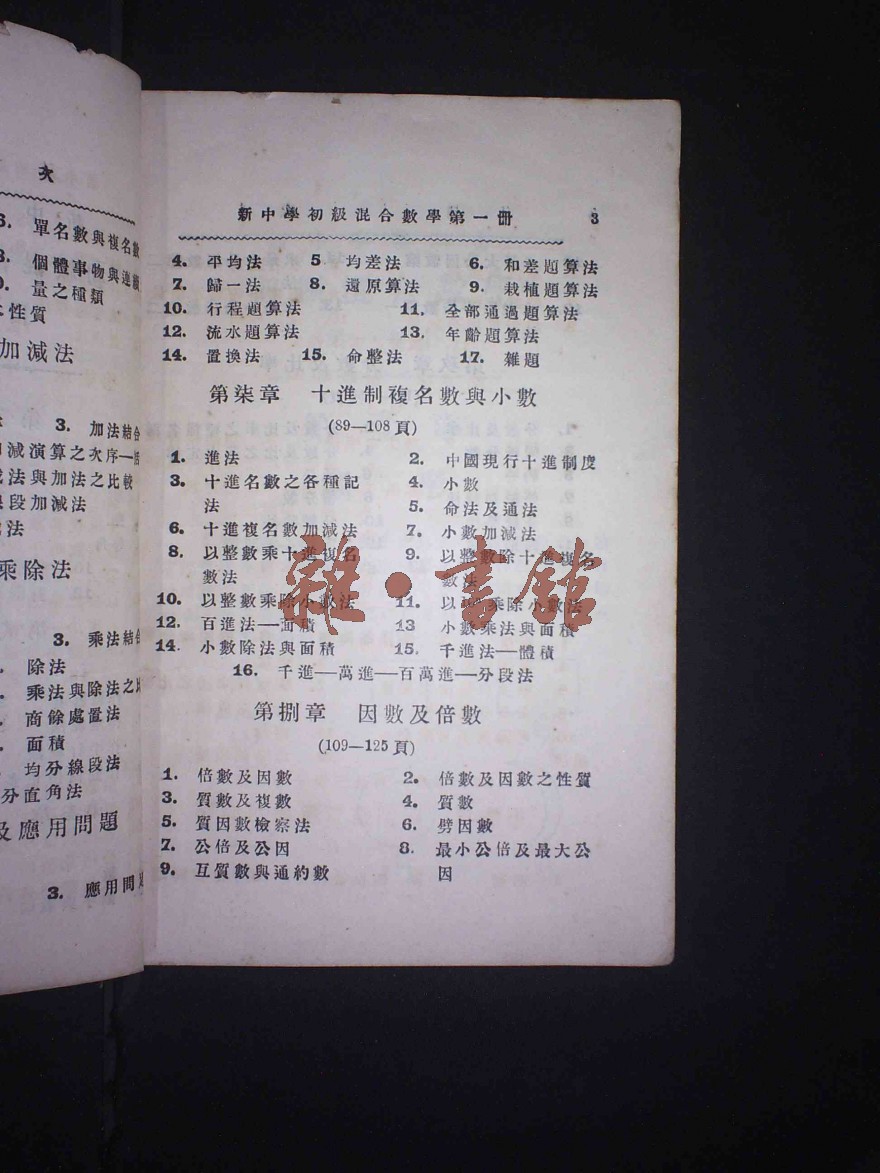 次
6. 單名數與複名數
個體事物與連續
量之種類
性質
加減法
3. 加法結合
減演算之次序—括
法與加法之比較
段加減法
法
乘除法
3. 乘法結合
除法
乘法與除法之比
商餘處置法
面積
均分線段法
分直角法
及應用問題
3. 應用問題
新中學初級混合數學第一册 3
4. 平均法 5. 均差法 6. 和差題算法
7. 歸一法 8. 還原算法 9. 栽植題算法
10. 行程題算法 11. 全部通過題算法
12. 流水題算法 13. 年齡題算法
14. 置換法 15. 命整法 17. 雜題
第柒章 十進制複名數與小數
(89—108頁)
1. 進法 2. 中國現行十進制度
3. 十進名數之各種記 4. 小數
法 5. 命法及通法
6. 十進複名數加減法 7. 小數加減法
8. 以整數乘十進複名 9. 以整數除十進複名
數法 數法
10. 以整數乘除小數法 11. 以 乘除小數法
12. 百進法—面積 13 小數乘法與面積
14. 小數除法與面積 15. 千進法—體積
16. 千進—萬進—百萬進—分段法
第捌章 因數及倍數
(109—125頁)
1. 倍數及因數 2. 倍數及因數之性質
3. 質數及複數 4. 質數
5. 質因數檢察法 6. 劈因數
7. 公倍及公因 8. 最小公倍及最大公
9. 互質數與通約數 因
雜·書館